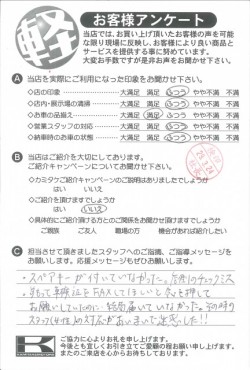 軽
お客様アンケート
当店では、お買い上げ頂いたお客様の声を可能
な限り現場に反映し、お客様により良い商品と
サービスを提供する事に努めています。
大変お手数ですが是非お声をお聞かせ下さい。
A 当店を実際にご利用になった印象をお聞かせ下さい。
◇店の印象 大満足 満足 ふつう やや不満 不満
◇店内・展示場の清掃 大満足 満足 ふつう やや不満 不満
◇お車の品揃え 大満足 満足 ふつう やや不満 不満
◇営業スタッフの対応 大満足 満足 ふつう やや不満 不満
◇納車時のお車の状態 大満足 満足 ふつう やや不満 不満
B 当店はご紹介を大切にしてあります。
ご紹介キャンペーンについてお聞かせ下さい。
◇カミタウご紹介キャンペーンのご説明はありましたでしょうか
はい いいえ
◇ご紹介を頂けますでしょうか
はい いいえ
◇具体的にご紹介頂ける方とのご関係をお聞かせ頂けますでしょうか
ご親族 ご友人 職場の方 機会があれば紹介したい
C 担当させて頂きましたスタッフへのご指摘、ご指導メッセージを
お願いします。応援メッセージもぜひお願いします。
・スペアキーが付いていなかった。
・先もって車検証をFAXしてほしいと
お願いしていたのに 結局届いていなかった。その時の
K
ご協力に心よりお礼を申し上げます。
今後とも宜しくお引き立てご愛顧の程お願い申し上げます。
またのご来店を心からお待ちしております。